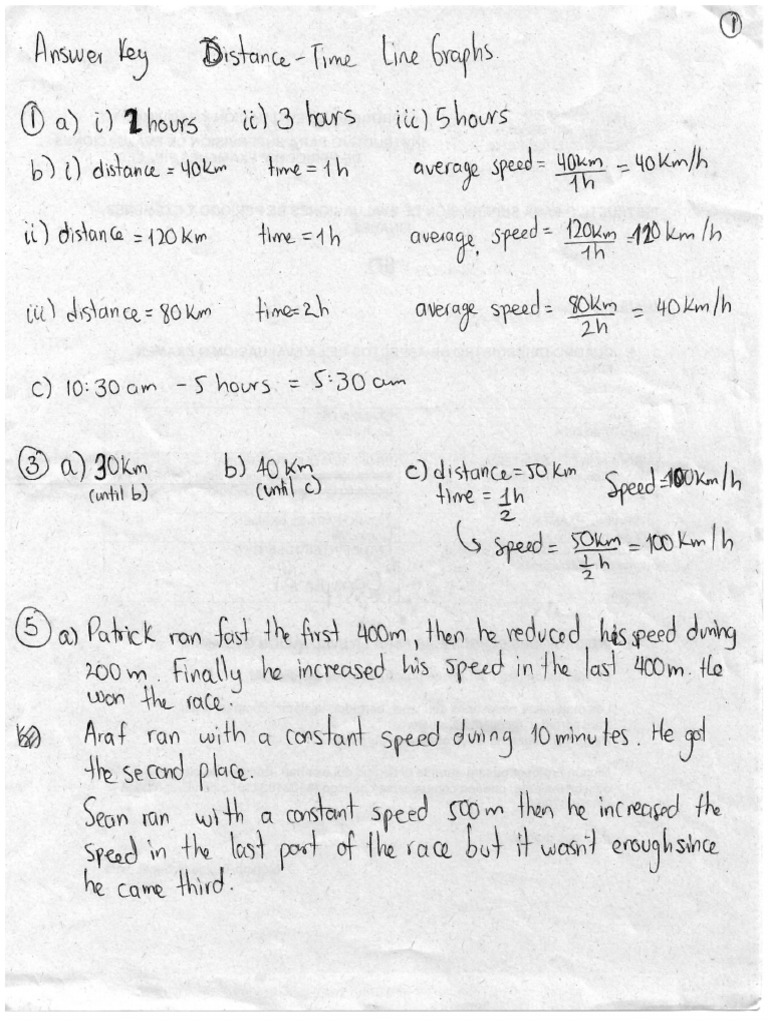 1
Answer Key Distance-Time Line Graphs.
1 a) i) 2 hours ii) 3 hours iii) 5 hours
b) i) distance = 40km time = 1h average speed = 40km/1h = 40km/h
ii) distance = 120 km time = 1h average speed = 120km/1h = 120 km/h
iii) distance = 80 km time = 2h average speed = 80km/2h = 40 km/h
c) 10:30 am - 5 hours = 5:30 am
3 a) 30km b) 40 km c) distance = 50 km Speed = 100km/h
(until b) (until c) time = 1/2 h
↳ speed = 50km/½h = 100 km/h
5 a) Patrick ran fast the first 400m, then he reduced his speed during
200 m. Finally he increased his speed in the last 400m. He
won the race.
Araf ran with a constant speed during 10 minutes. He got
the second place.
Sean ran with a constant speed 500m then he increased the
speed in the last part of the race but it wasn't enough since
he came third.